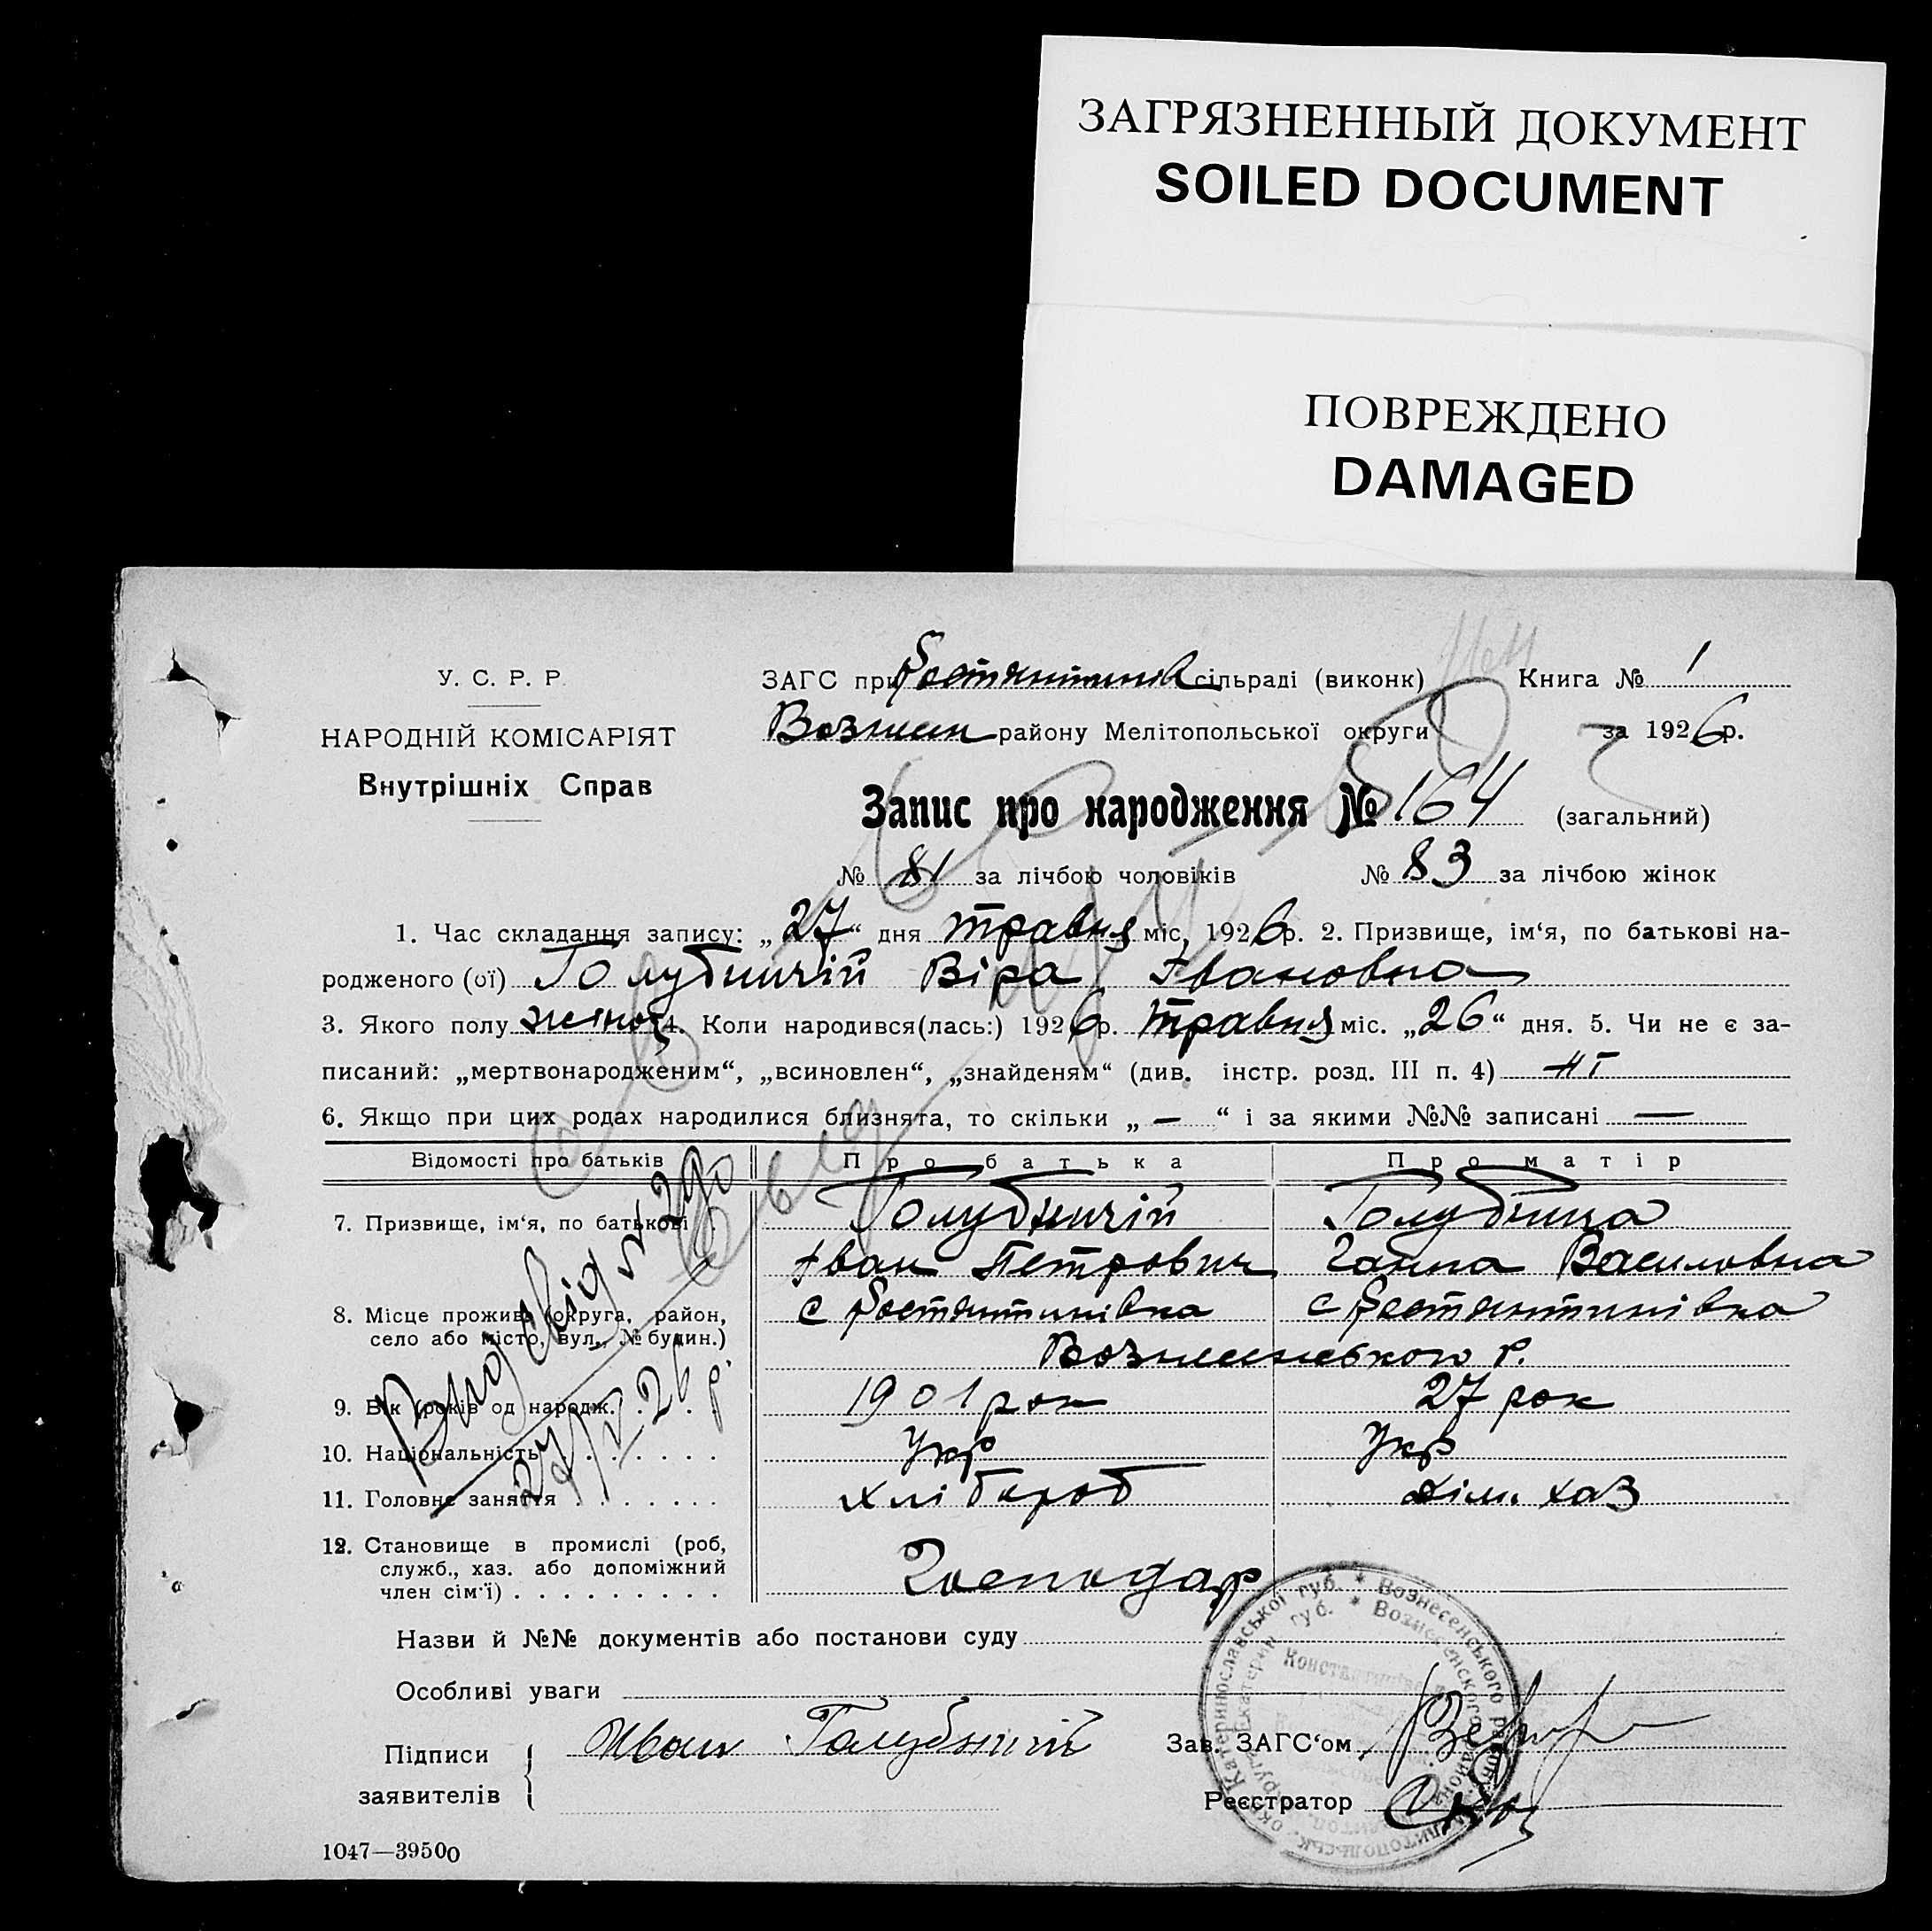 ЗАГРЯЗНЕННЫЙ ДОКУМЕНТ
SOILED DOCUMENT
ПОВРЕЖДЕНО
DAMAGED
У. С. Р. Р.
НАРОДНІЙ КОМІСАРІЯТ
Внутрішніх Справ
ЗАГС при сільраді (виконк) Книга № 1
Вознесен району Мелітопольської округи за 1926 р.
Запис про народження № 164 (загальний)
№ 81 за лічбою чоловіків № 83 за лічбою жінок
1. Час складання запису: „27“ дня травня міс. 1926 р. 2. Призвище, ім‘я, по батькові на-
родженого (ої) Голубничій Віра Івановна
3. Якого полу жіноч 4. Коли народився(лась:) 1926 р. травня міс. „26“ дня. 5. Чи не є за-
писаний: „мертвонародженим“, „всиновлен“, „знайденям“ (див. інстр. розд. III п. 4) ні
6. Якщо при цих родах народилися близнята, то скільки „ — “ і за якими №№ записані —
Відомості про батьків Про батька Про матір
7. Призвище, ім‘я, по батькові Голубничій Голубнича
Іван Петрович Ганна Василовна
8. Місце прожив. (округа, район,
село або місто, вул., № будин.)
Вознесенського р.
9. Вік (років од народж. . . . . 1901 рок 27 рок
10. Національність . . . . . . . Укр Укр
11. Головне заняття . . . . . . . хлібороб дім. хаз
12. Становище в промислі (роб,
служб., хаз. або допоміжний
член сім‘ї) . . . . . . . . . Господар
Назви й №№ документів або постанови суду
Особливі уваги
Підписи
заявителів
Иван Голубничий
Зав. ЗАГС‘ом
Реєстратор
1047—39500
27/V 26 р.
Катеринославської губ. * Вознесенського району Мелітопольськ. округи